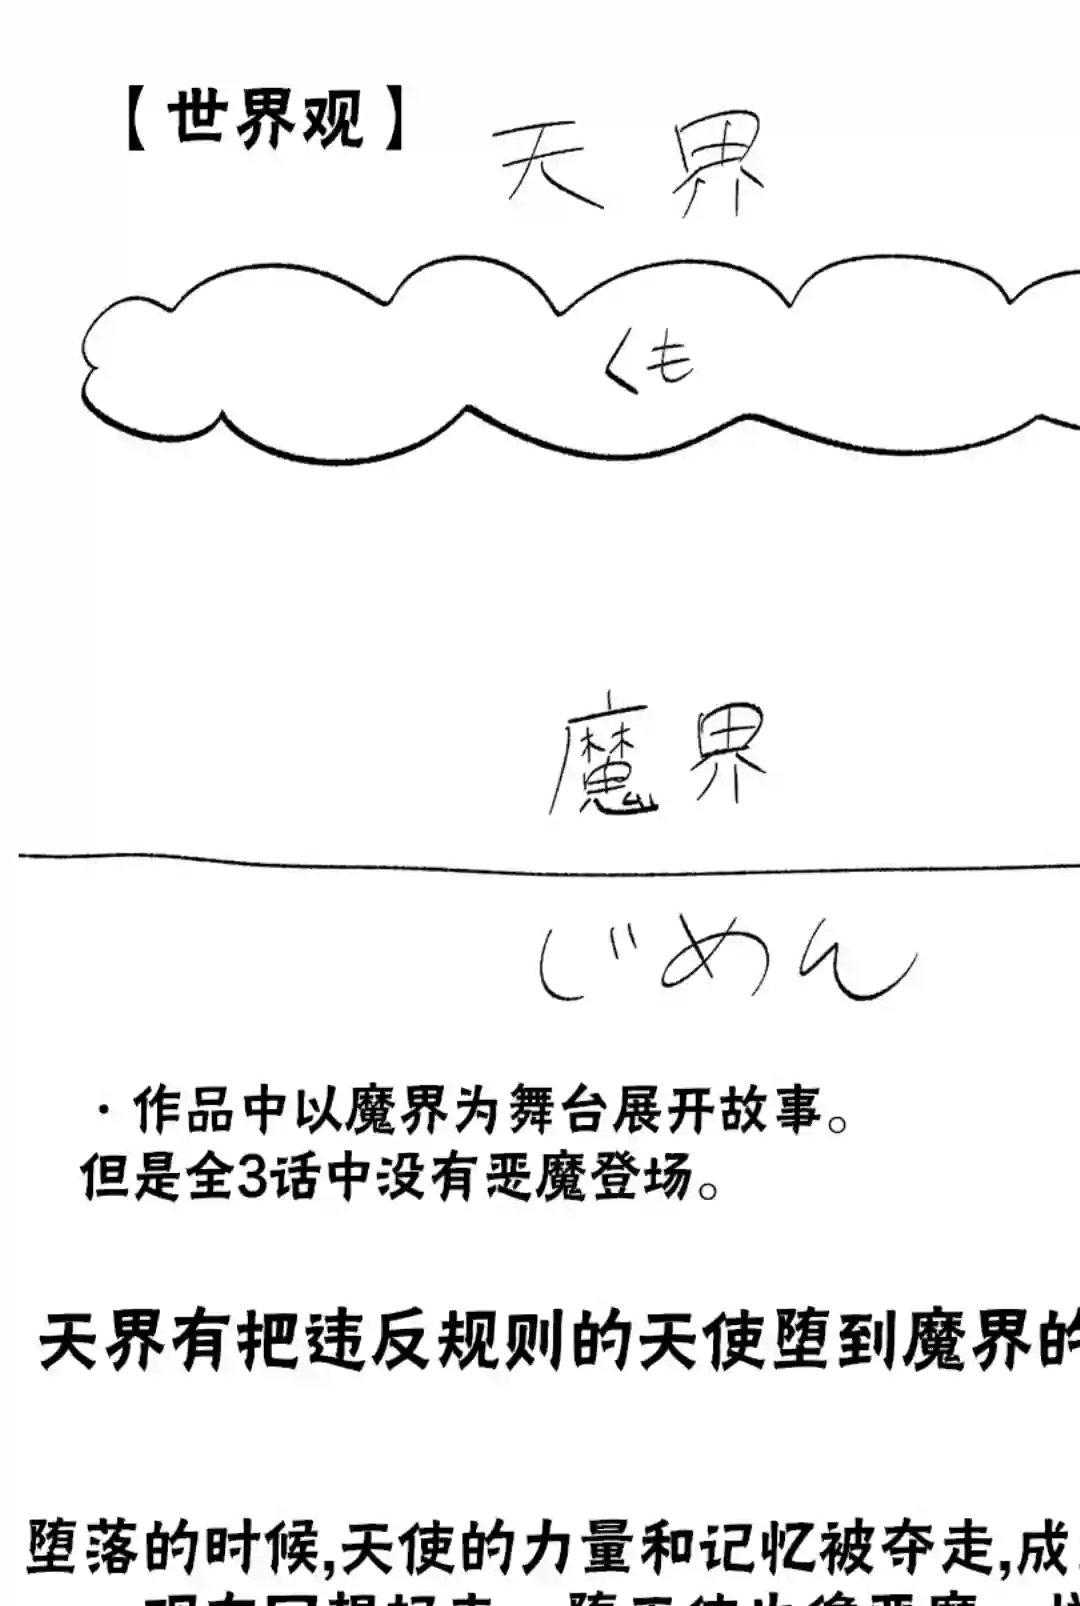 【世界观】
天界
くも
魔界
じめん
·作品中以魔界为舞台展开故事。
但是全3话中没有恶魔登场。
天界有把违反规则的天使堕到魔界的
堕落的时候,天使的力量和记忆被夺走,成